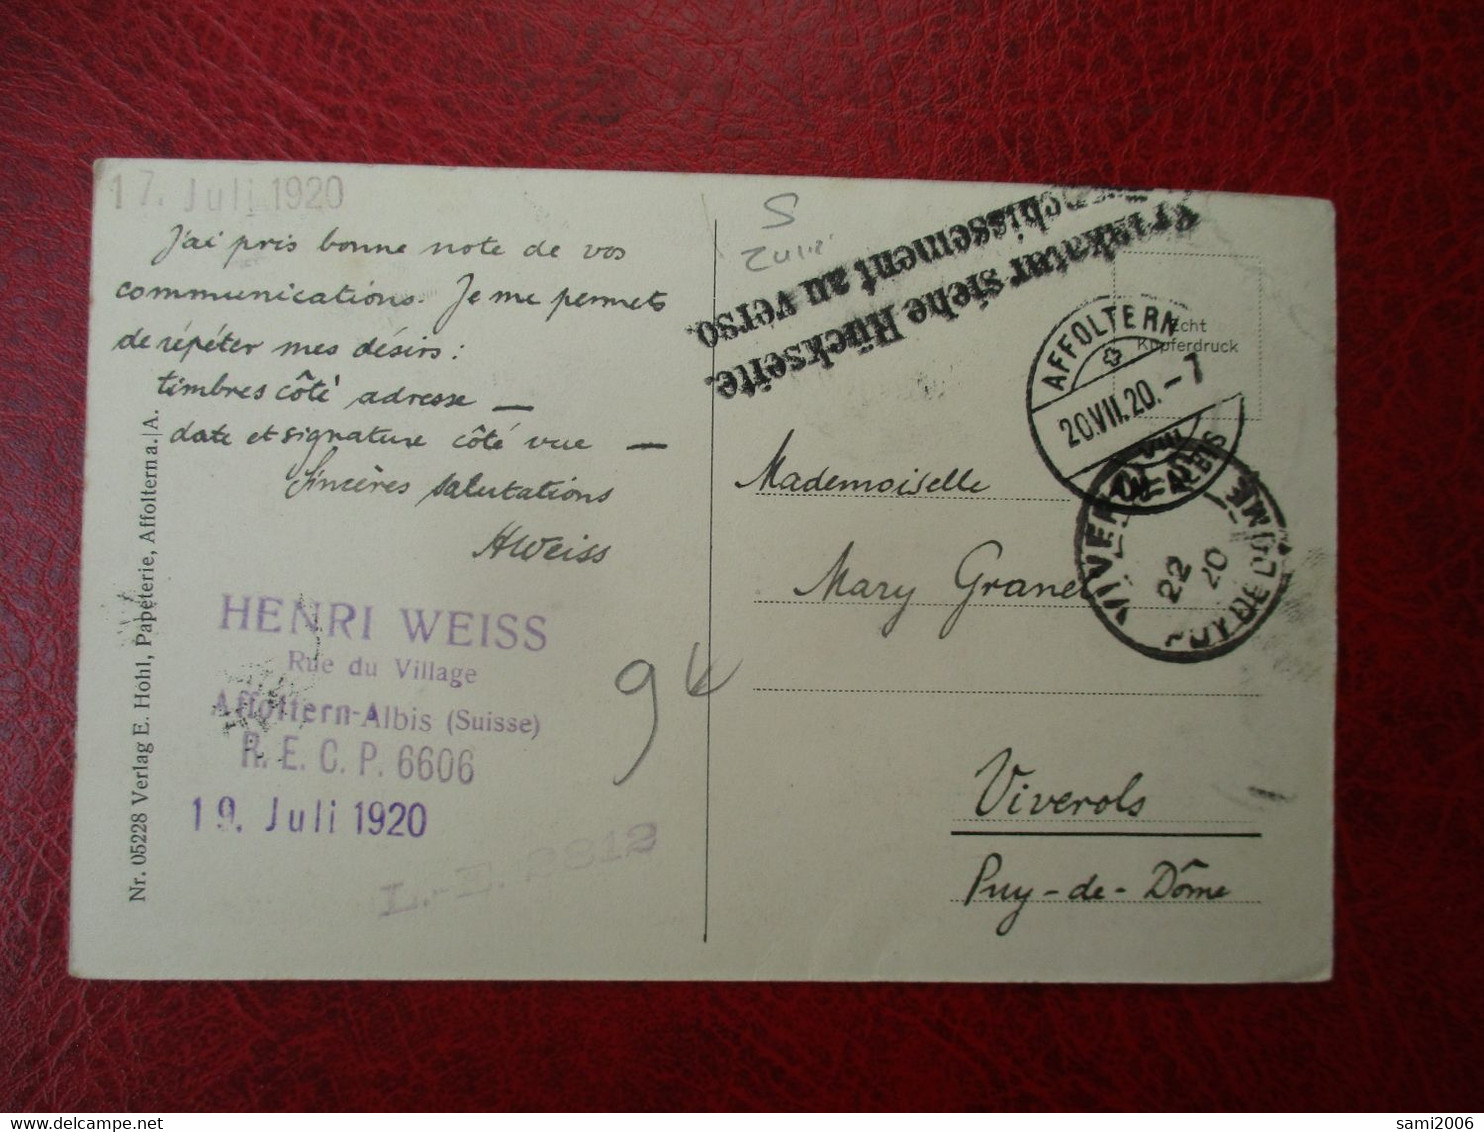 17. Juli 1920
J'ai pris bonne note de vos
communications. Je me permets
de répéter mes désirs :
timbres côté adresse —
date et signature côté vue —
Sincères salutations
HWeiss
HENRI WEISS
Rue du Village
Affoltern-Albis (Suisse)
R. E. C. P. 6606
19. Juli 1920
L.-E. 2812
Nr. 05228 Verlag E. Hohl, Papeterie, Affoltern a.|A.
S
Frankatur siehe Rückseite.
Affranchissement au verso.
Echt
Kupferdruck
AFFOLTERN
20.VII.20.-7
ALBIS
VIVEROLS
22
20
PUY DE DOME
Mademoiselle
Mary Granel
Viverols
Puy-de-Dôme
9
sami2006